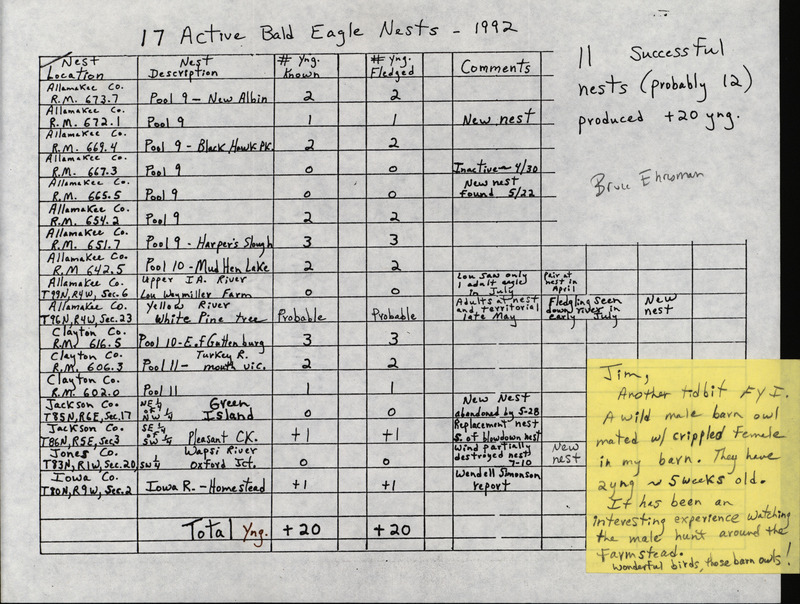 17 Active Bald Eagle Nests - 1992
Nest Location | Nest Description | # Yng. Known | # Yng. Fledged | Comments
Allamakee Co. R.M. 673.7 | Pool 9 - New Albin | 2 | 2
Allamakee Co. R.M. 672.1 | Pool 9 | 1 | 1 | New nest
Allamakee Co. R.M. 669.4 | Pool 9 - Black Hawk Pk. | 2 | 2
Allamakee Co. R.M. 667.3 | Pool 9 | 0 | 0 | Inactive - 4/30
Allamakee Co. R.M. 665.5 | Pool 9 | 0 | 0 | New nest found 5/22
Allamakee Co. R.M. 654.2 | Pool 9 | 2 | 2
Allamakee Co. R.M. 651.7 | Pool 9 - Harper's Slough | 3 | 3
Allamakee Co. R.M 642.5 | Pool 10 - Mud Hen Lake | 2 | 2
Allamakee Co. T99N, R4W, Sec. 6 | Upper IA. River Lou Waymiller Farm | 0 | 0 | Lou saw only 1 adult eagle in July | Pair at nest in April
Allamakee Co. T96N, R4W, Sec. 23 | Yellow River White Pine tree | Probable | Probable | Adults at nest and territorial late May | Fledgling seen down river in early July | New nest
Clayton Co. R.M. 616.5 | Pool 10 - E. of Guttenburg | 3 | 3
Clayton Co. R.M. 606.3 | Pool 11 - Turkey R. mouth vic. | 2 | 2
Clayton Co. R.M. 602.0 | Pool 11 | 1 | 1
Jackson Co. T85N, R6E, Sec. 17 | NE 1/4 of NW 1/4 Green Island | 0 | 0 | New Nest abandoned by 5-28
Jackson Co. T86N, R5E, Sec 3 | SE 1/4 of SW 1/4 Pleasant CK. | +1 | +1 | Replacement nest S. of blowdown nest
Jones Co. T83N, R1W, Sec. 20, SW 1/4 | Wapsi River Oxford Jct. | 0 | 0 | Wind partially destroyed nest 7-10 | New nest
Iowa Co. T80N, R9W, Sec. 2 | Iowa R. - Homestead | +1 | +1 | Wendell Simonson report
Total Yng. | +20 | +20
11 Successful
nests (probably 12)
produced +20 yng.
Bruce Ehresman
Jim,
Another tidbit FYI.
A wild male barn owl
mated w/ crippled female
in my barn. They have
2 yng ~ 5 weeks old.
It has been an
interesting experience watching
the male hunt around the
farmstead.
Wonderful birds, those barn owls!